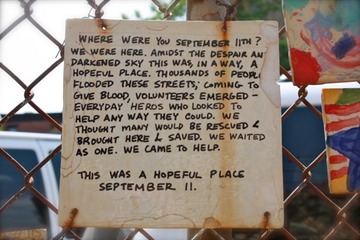 WHERE WERE YOU SEPTEMBER 11TH?
WE WERE HERE. AMIDST THE DESPAIR AN
DARKENED SKY THIS WAS, IN A WAY, A
HOPEFUL PLACE. THOUSANDS OF PEOPL
FLOODED THESE STREETS, COMING TO
GIVE BLOOD, VOLUNTEERS EMERGED -
EVERYDAY HEROS WHO LOOKED TO
HELP ANY WAY THEY COULD. WE
THOUGHT MANY WOULD BE RESCUED &
BROUGHT HERE & SAVED. WE WAITED
AS ONE. WE CAME TO HELP.
THIS WAS A HOPEFUL PLACE
SEPTEMBER 11.